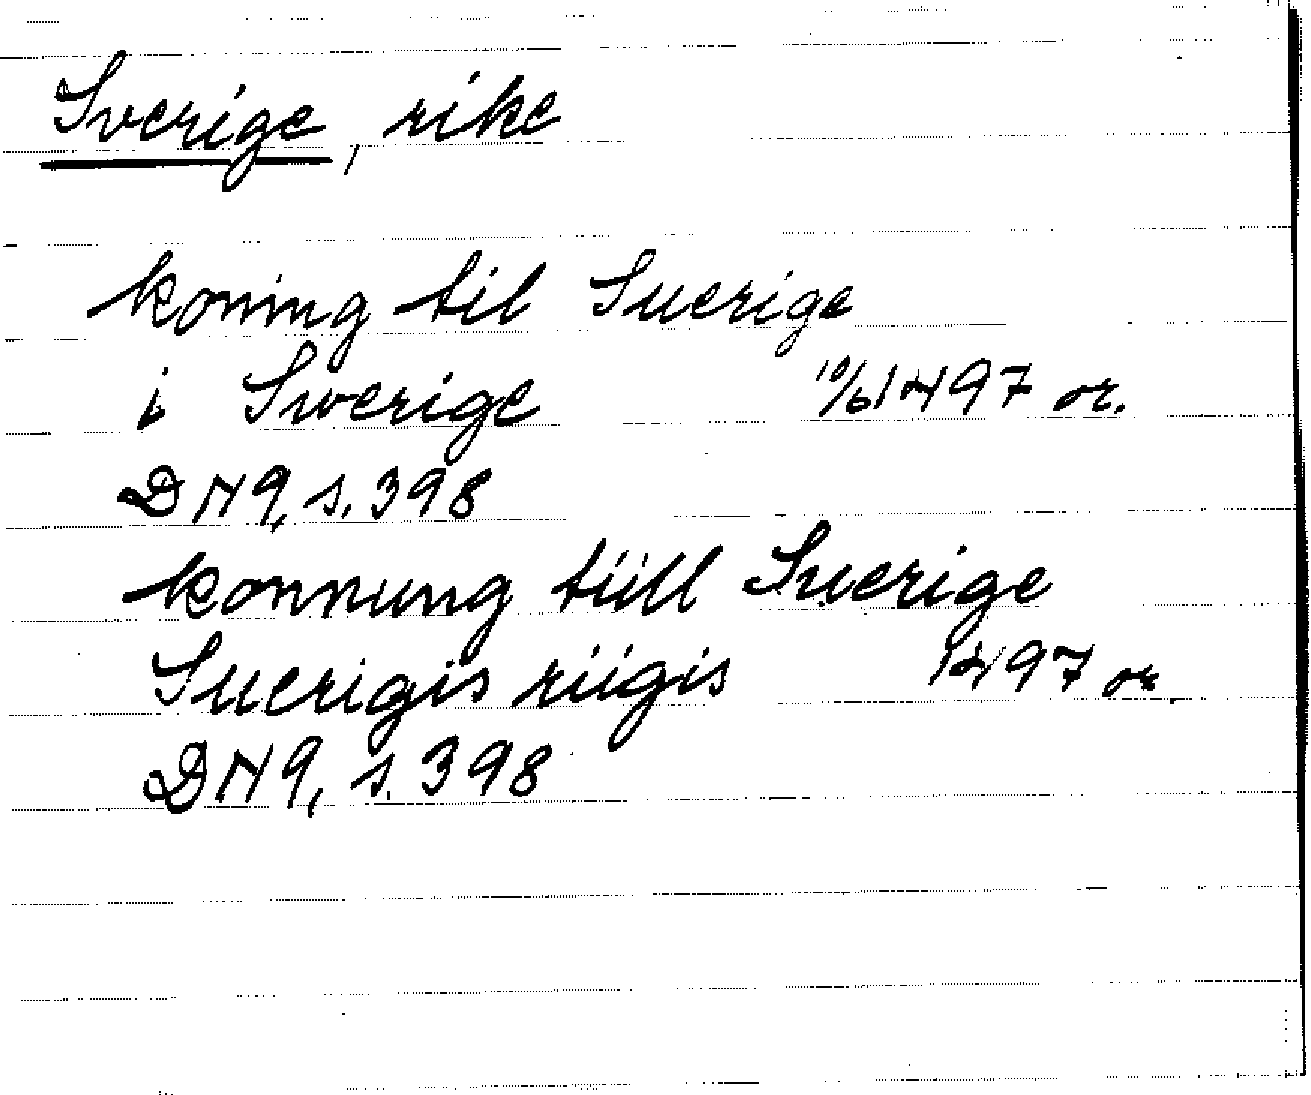 Sverige, rike
koning til Suerige
i Swerige 10/6 1497 or.
DN 9, s. 398
konnung tiill Suerige
Suerigis riigis 1497 or.
DN 9, s. 398